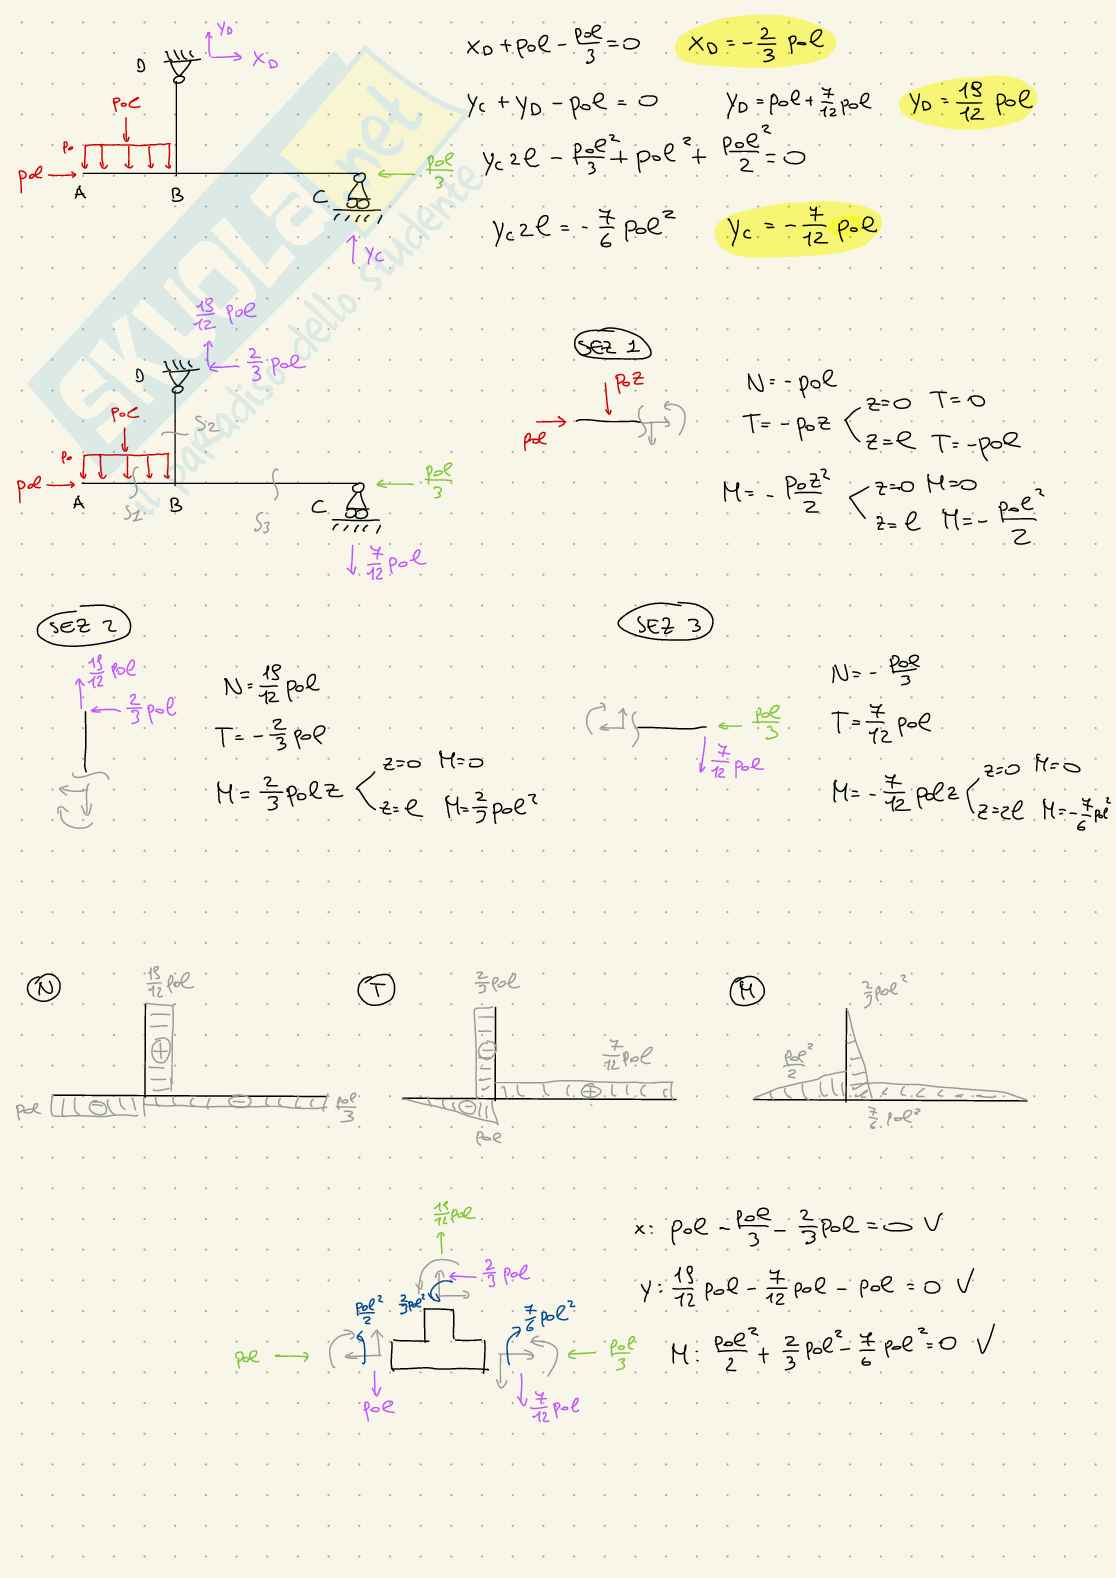 Y_D
D X_D
p₀l
p₀
p₀l
A B C
p₀l/3
Y_C
X_D + p₀l - p₀l/3 = 0 X_D = -2/3 p₀l
Y_C + Y_D - p₀l = 0 Y_D = p₀l + 7/12 p₀l Y_D = 19/12 p₀l
Y_C 2l - p₀l²/3 + p₀l² + p₀l²/2 = 0
Y_C 2l = -7/6 p₀l² Y_C = -7/12 p₀l
SKUOLA.net
il paradiso dello studente
19/12 p₀l
D 2/3 p₀l
p₀l
p₀
p₀l
S2
A B C
S1 S3
p₀l/3
7/12 p₀l
SEZ 1
p₀z
p₀l
N = -p₀l
T = -p₀z z=0 T=0
z=l T=-p₀l
M = -p₀z²/2 z=0 M=0
z=l M=-p₀l²/2
SEZ 2
19/12 p₀l
2/3 p₀l
N = 19/12 p₀l
T = -2/3 p₀l
M = 2/3 p₀l z z=0 M=0
z=l M=2/3 p₀l²
SEZ 3
p₀l/3
7/12 p₀l
N = -p₀l/3
T = 7/12 p₀l
M = -7/12 p₀l z z=0 M=0
z=2l M=-7/6 p₀l²
N
19/12 p₀l
+
p₀l - - p₀l/3
T
2/3 p₀l
-
7/12 p₀l
- +
p₀l
M
2/3 p₀l²
p₀l²/2
7/6 p₀l²
19/12 p₀l
2/3 p₀l
p₀l²/2 2/3 p₀l² 7/6 p₀l²
p₀l p₀l/3
p₀l 7/12 p₀l
x: p₀l - p₀l/3 - 2/3 p₀l = 0 ✓
y: 19/12 p₀l - 7/12 p₀l - p₀l = 0 ✓
M: p₀l²/2 + 2/3 p₀l² - 7/6 p₀l² = 0 ✓